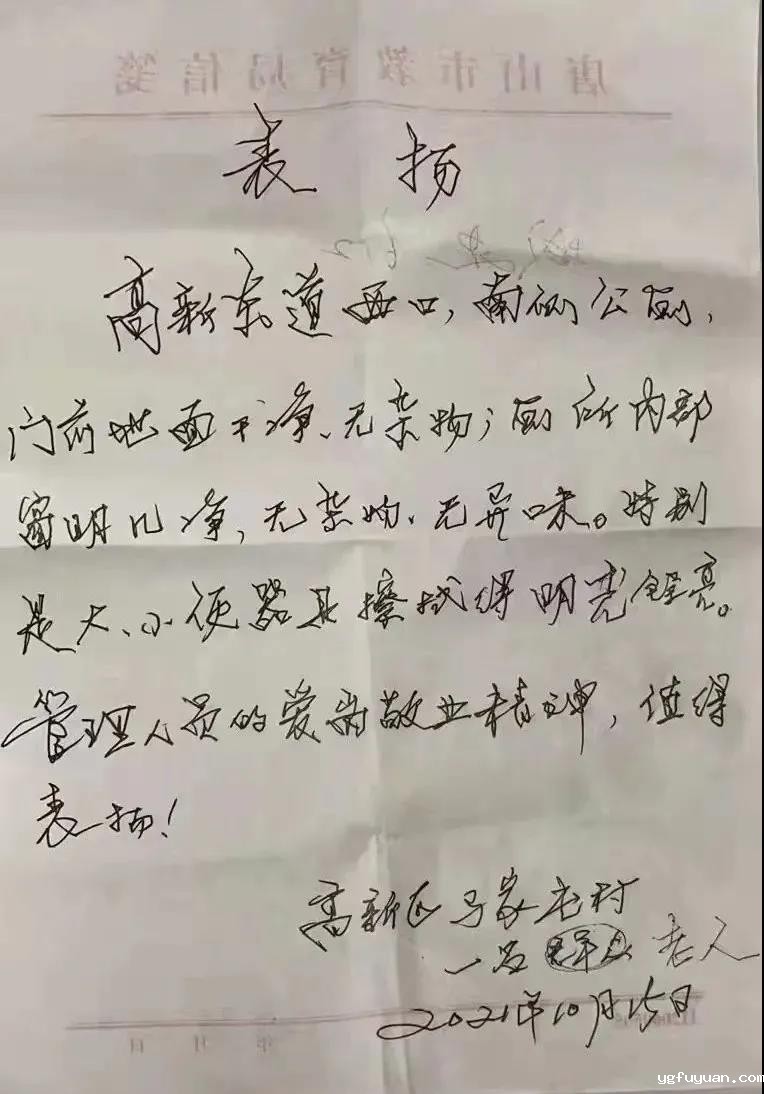 唐山市教育局信笺
表 扬
高新东道西口，南侧公厕，
门前地面干净、无杂物；厕所内部
窗明几净，无杂物、无异味。特别
是大、小便器具擦拭得明亮锃亮。
管理人员的爱岗敬业精神，值得
表扬！
高新区马家屯村
一名 老人
2021年10月15日
年 月 日
ygfuyuan.com